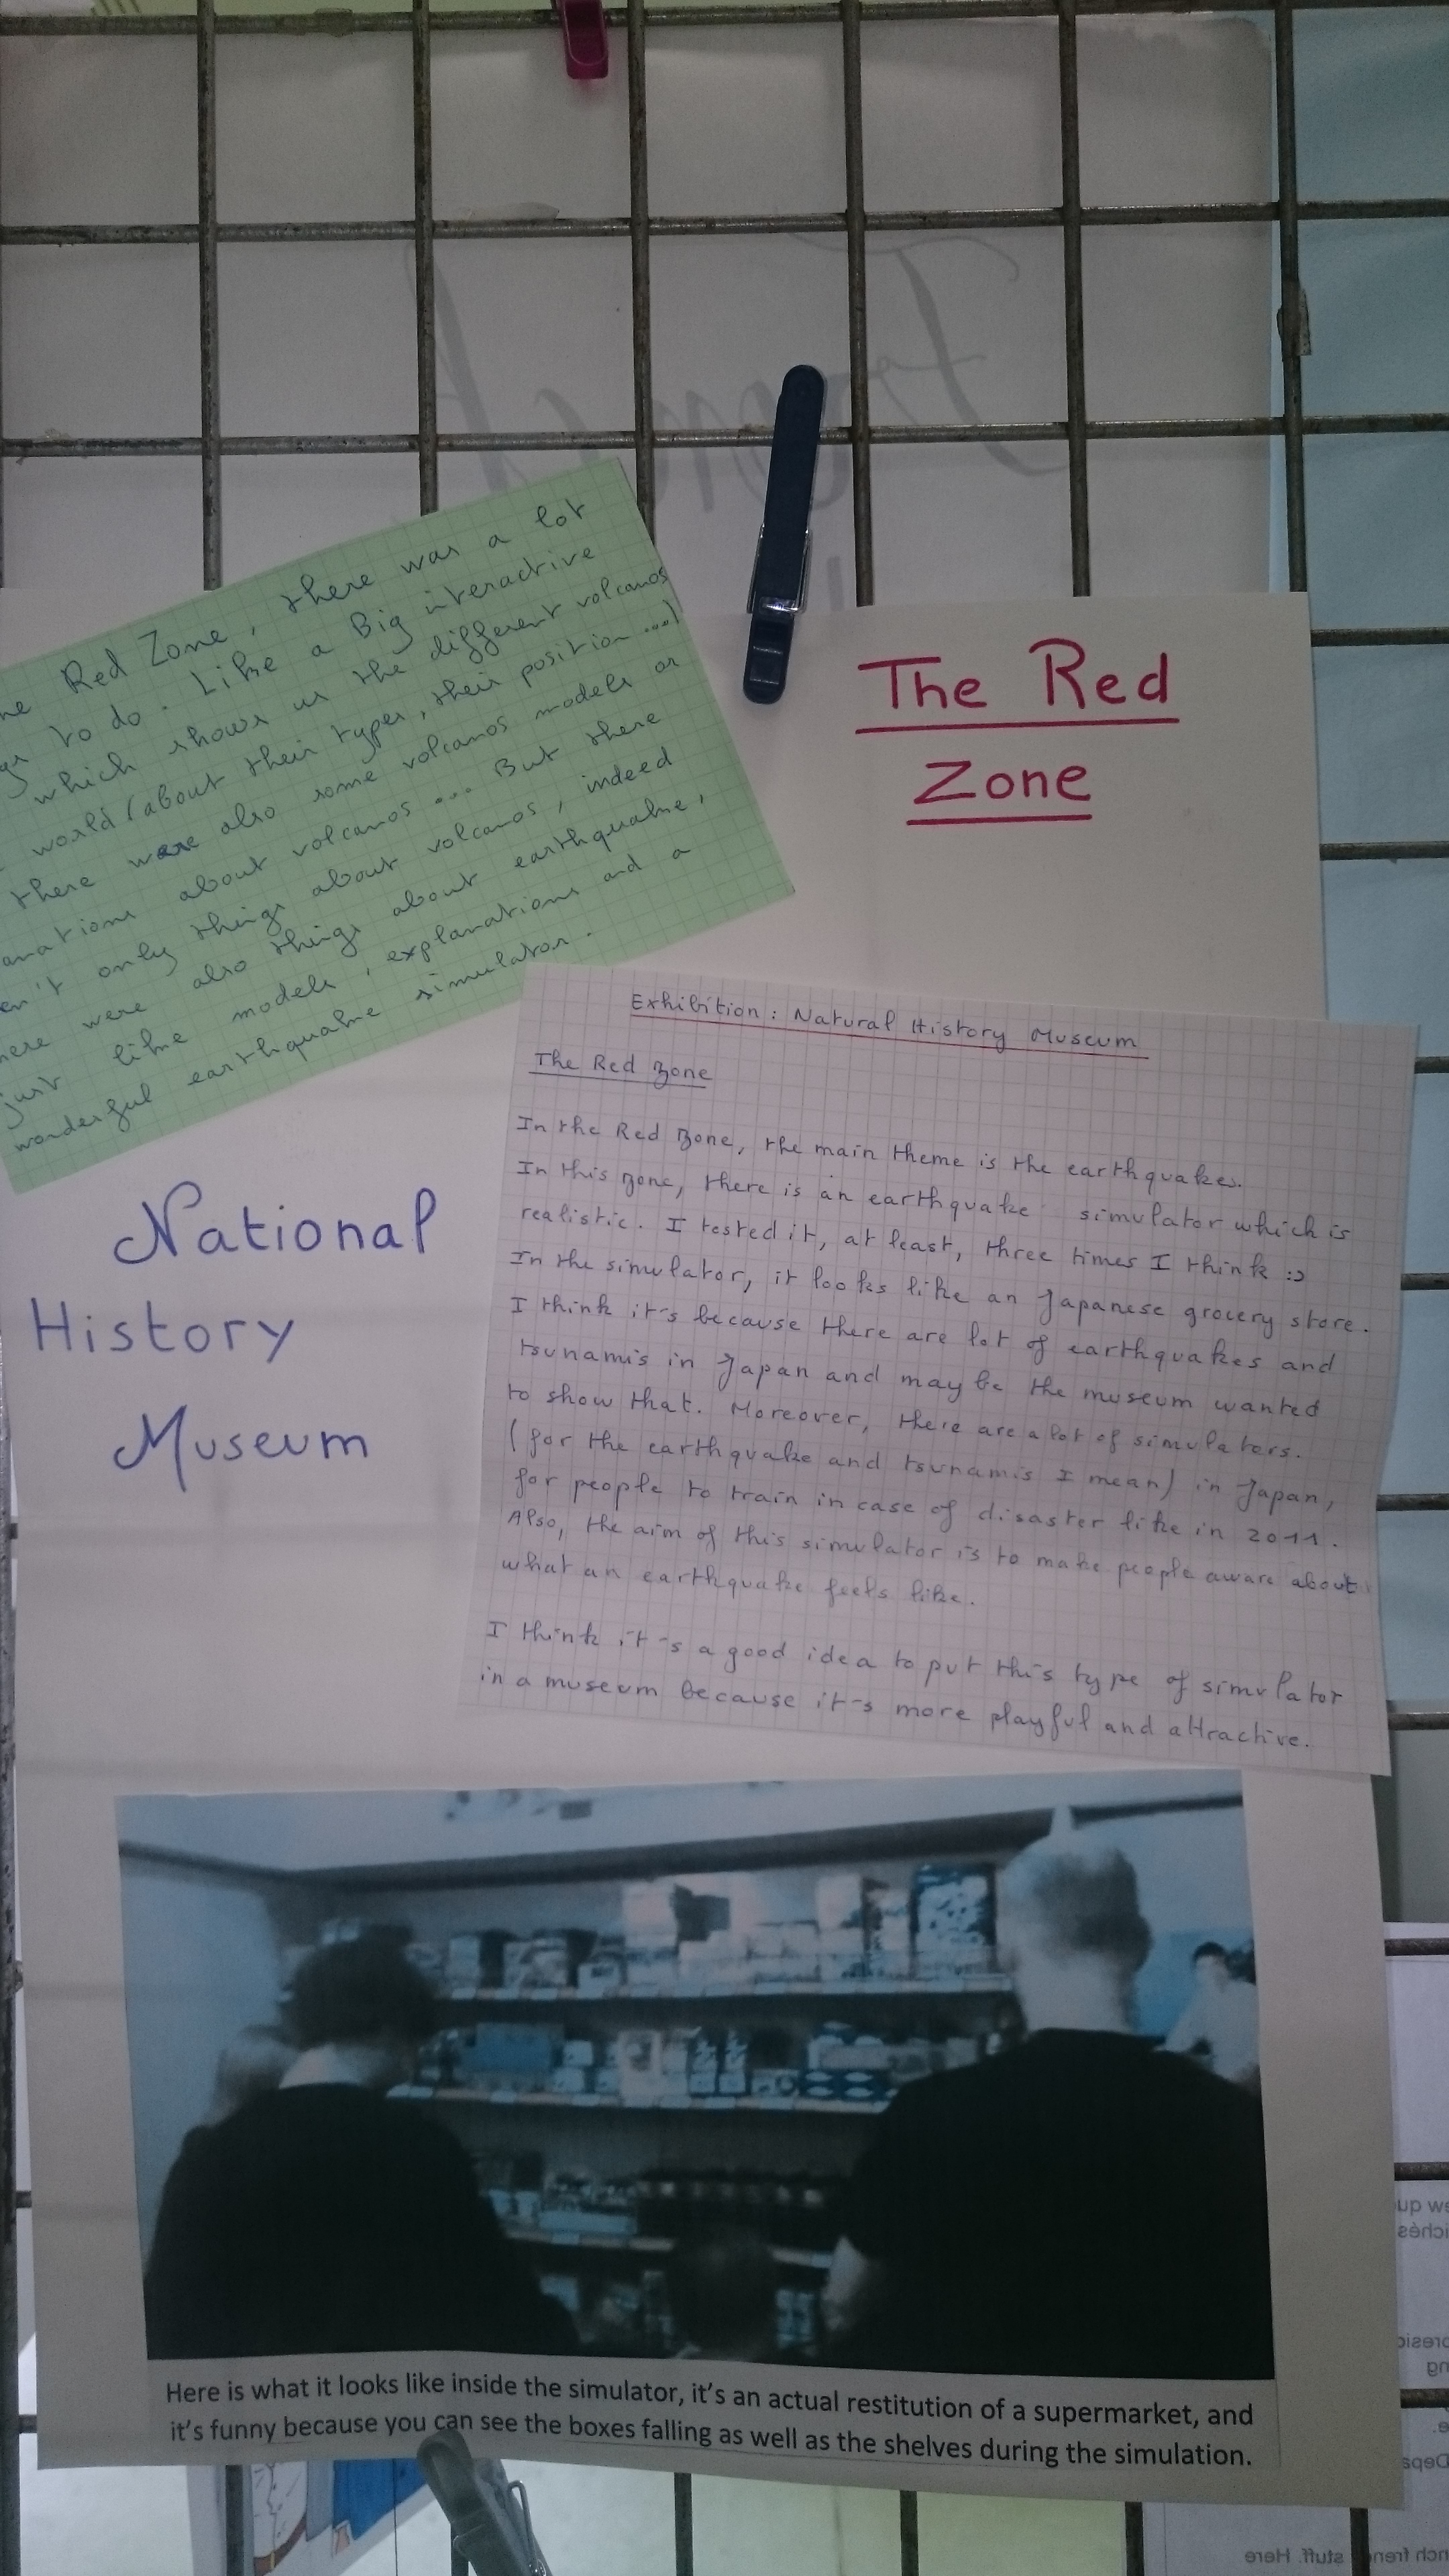 French
Red Zone, there was a lot
to do. Like a Big interactive
which shows us the different volcanos
world (about their types, their position ...)
there were also some volcanos models or
about volcanos ... But there
only things about volcanos, indeed
were also things about earthquake,
just like models, explanations and a
wonderful earthquake simulator.
The Red
Zone
Exhibition : Natural History Museum
The Red Zone
In the Red Zone, the main theme is the earthquakes.
In this zone, there is an earthquake simulator which is
realistic. I tested it, at least, three times I think :)
In the simulator, it looks like an Japanese grocery store.
I think it's because there are lot of earthquakes and
tsunamis in Japan and may be the museum wanted
to show that. Moreover, there are a lot of simulators.
(for the earthquake and tsunamis I mean) in Japan,
for people to train in case of disaster like in 2011.
Also, the aim of this simulator is to make people aware about
what an earthquake feels like.
I think it's a good idea to put this type of simulator
in a museum because it's more playful and attractive.
National
History
Museum
Here is what it looks like inside the simulator, it's an actual restitution of a supermarket, and
it's funny because you can see the boxes falling as well as the shelves during the simulation.
stuff. Here